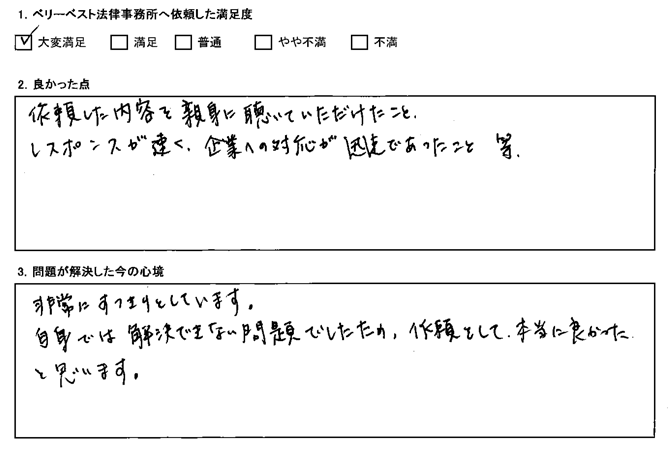 1. ベリーベスト法律事務所へ依頼した満足度
大変満足 満足 普通 やや不満 不満
2. 良かった点
依頼した内容を親身に聴いていただけたこと、
レスポンスが速く、企業への対応が迅速であったこと 等、
3. 問題が解決した今の心境
非常にすっきりとしています。
自身では解決できない問題でしたため、依頼をして本当に良かった
と思います。